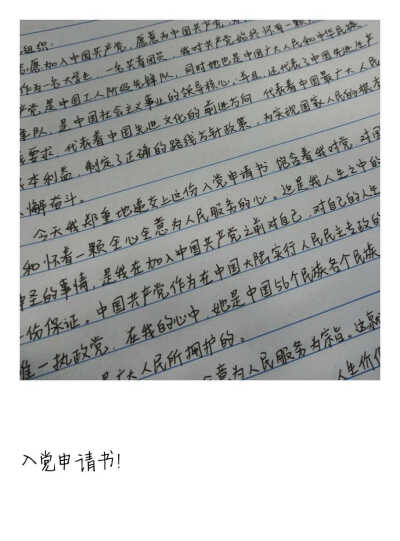 组织:
志愿加入中国共产党,愿意为中国共产
作为一名大学生,一名共青团员,我对中国共产党始终
产党是中国工人阶级先锋队,同时也是中国广大人民和中华民族
锋队,是中国社会主义事业的领导核心,并且,还代表了中国先进生产
展要求,代表着中国先进文化的前进方向,代表着中国最广大人民
根本利益,制定了正确的路线方针政策,为实现国家人民的根本
不懈奋斗。
今天我郑重地递交上这份入党申请书,饱含着我对党、对国
和怀着一颗全心全意为人民服务的心。这是我人生之中的
神圣的事情,是我在加入中国共产党之前对自己、对自己的人生
一份保证。中国共产党作为在中国大陆实行人民民主专政的
唯一执政党,在我的心中,她是中国56个民族各个民族
是广大人民所拥护的。
意为人民服务为宗旨。这意
人生价值
入党申请书!